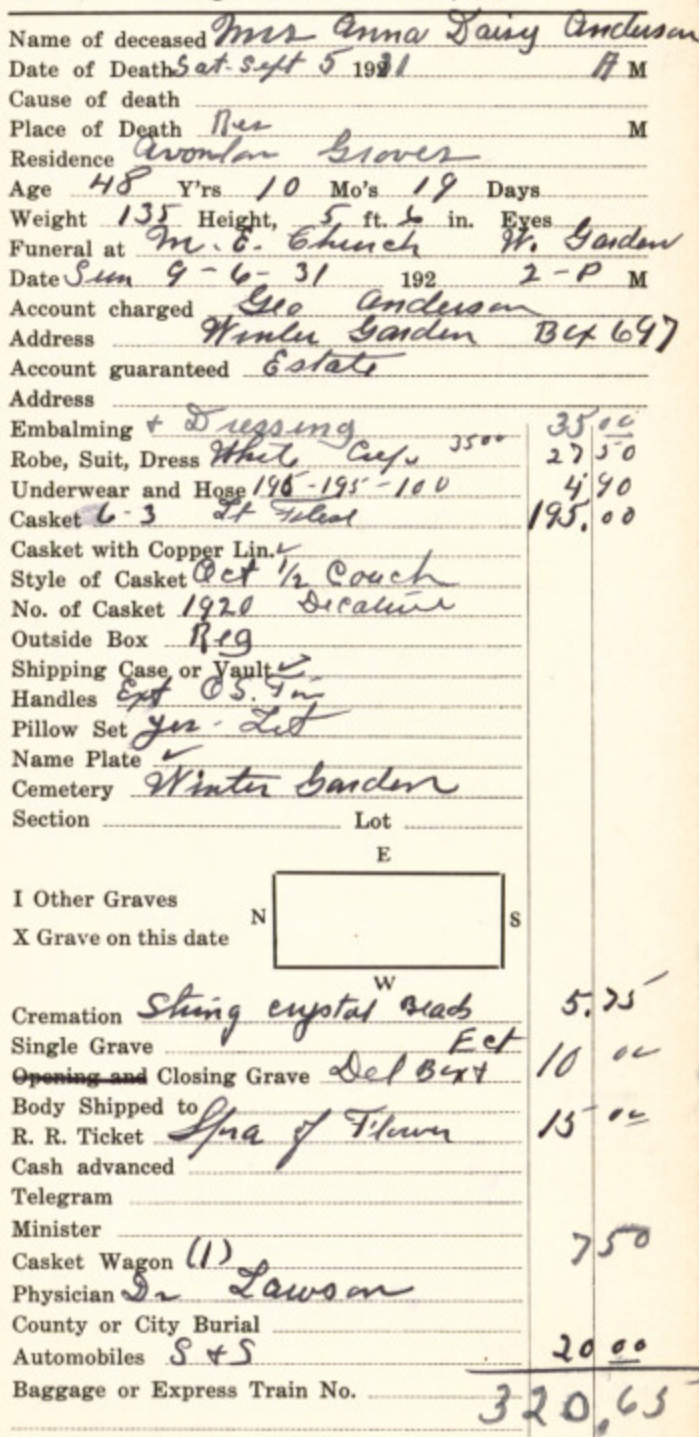 Name of deceased Mrs Anna Daisy Anderson
Date of Death Sat. Sept 5 1931 A M
Cause of death
Place of Death Res M
Residence Avonlon Groves
Age 48 Y'rs 10 Mo's 19 Days
Weight 135 Height, 5 ft. 6 in. Eyes
Funeral at M. E. Church W. Garden
Date Sun 9-6-31 192 2-P M
Account charged Geo Anderson
Address Winter Garden Box 697
Account guaranteed Estate
Address
Embalming + Dressing 35 00
Robe, Suit, Dress White 35 00 27 50
Underwear and Hose 195-195-100 4 90
Casket 6-3 Lt 195.00
Casket with Copper Lin. ✓
Style of Casket Oct 1/2 Couch
No. of Casket 1920
Outside Box Reg
Shipping Case or Vault ✓
Handles Ext
Pillow Set yes -
Name Plate ✓
Cemetery Winter Garden
Section Lot
E
I Other Graves
N S
X Grave on this date
W
Cremation String crystal Beads 5.75
Single Grave Ect
Opening and Closing Grave Del Box + 10 00
Body Shipped to
R. R. Ticket Spra of Flower 15 00
Cash advanced
Telegram
Minister
Casket Wagon (1) 7 50
Physician Dr Lawson
County or City Burial
Automobiles S & S 20 00
Baggage or Express Train No. 320.65